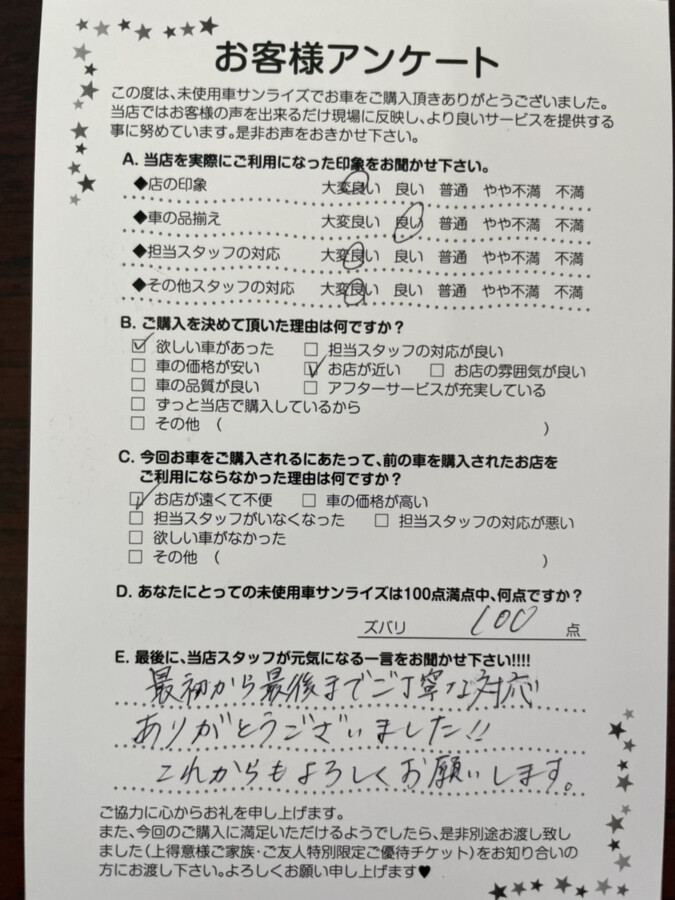 お客様アンケート
この度は、未使用車サンライズでお車をご購入頂きありがとうございました。
当店ではお客様の声を出来るだけ現場に反映し、より良いサービスを提供する
事に努めています。是非お声をおきかせ下さい。
A. 当店を実際にご利用になった印象をお聞かせ下さい。
◆店の印象 大変良い 良い 普通 やや不満 不満
◆車の品揃え 大変良い 良い 普通 やや不満 不満
◆担当スタッフの対応 大変良い 良い 普通 やや不満 不満
◆その他スタッフの対応 大変良い 良い 普通 やや不満 不満
B. ご購入を決めて頂いた理由は何ですか？
☑ 欲しい車があった □ 担当スタッフの対応が良い
□ 車の価格が安い ☑ お店が近い □ お店の雰囲気が良い
□ 車の品質が良い □ アフターサービスが充実している
□ ずっと当店で購入しているから
□ その他 （ ）
C. 今回お車をご購入されるにあたって、前の車を購入されたお店を
ご利用にならなかった理由は何ですか？
☑ お店が遠くて不便 □ 車の価格が高い
□ 担当スタッフがいなくなった □ 担当スタッフの対応が悪い
□ 欲しい車がなかった
□ その他 （ ）
D. あなたにとっての未使用車サンライズは100点満点中、何点ですか？
ズバリ 100 点
E. 最後に、当店スタッフが元気になる一言をお聞かせ下さい!!!!
最初から最後までご丁寧な対応
ありがとうございました!!
これからもよろしくお願いします。
ご協力に心からお礼を申し上げます。
また、今回のご購入に満足いただけるようでしたら、是非別途お渡し致し
ました（上得意様ご家族・ご友人特別限定ご優待チケット）をお知り合いの
方にお渡し下さい。よろしくお願い申し上げます♥